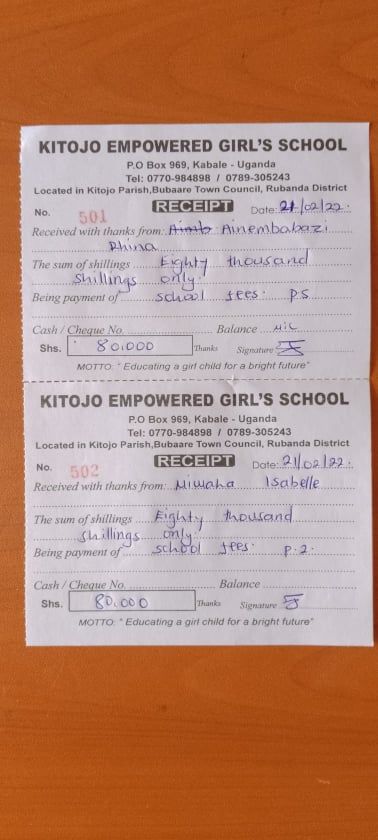 KITOJO EMPOWERED GIRL'S SCHOOL
P.O Box 969, Kabale - Uganda
Tel: 0770-984898 / 0789-305243
Located in Kitojo Parish,Bubaare Town Council, Rubanda District
No. 501 RECEIPT Date: 21/02/22.
Received with thanks from: Ainembabazi
Rhina
The sum of shillings Eighty thousand
shillings only.
Being payment of school fees. P5
Cash / Cheque No. Balance NIL
Shs. 80.000 Thanks Signature
MOTTO: " Educating a girl child for a bright future"
KITOJO EMPOWERED GIRL'S SCHOOL
P.O Box 969, Kabale - Uganda
Tel: 0770-984898 / 0789-305243
Located in Kitojo Parish,Bubaare Town Council, Rubanda District
No. 502 RECEIPT Date: 21/02/22.
Received with thanks from: Isabelle
The sum of shillings Eighty thousand
shillings only
Being payment of school fees. P.2.
Cash / Cheque No. Balance
Shs. 80.000 Thanks Signature
MOTTO: " Educating a girl child for a bright future"